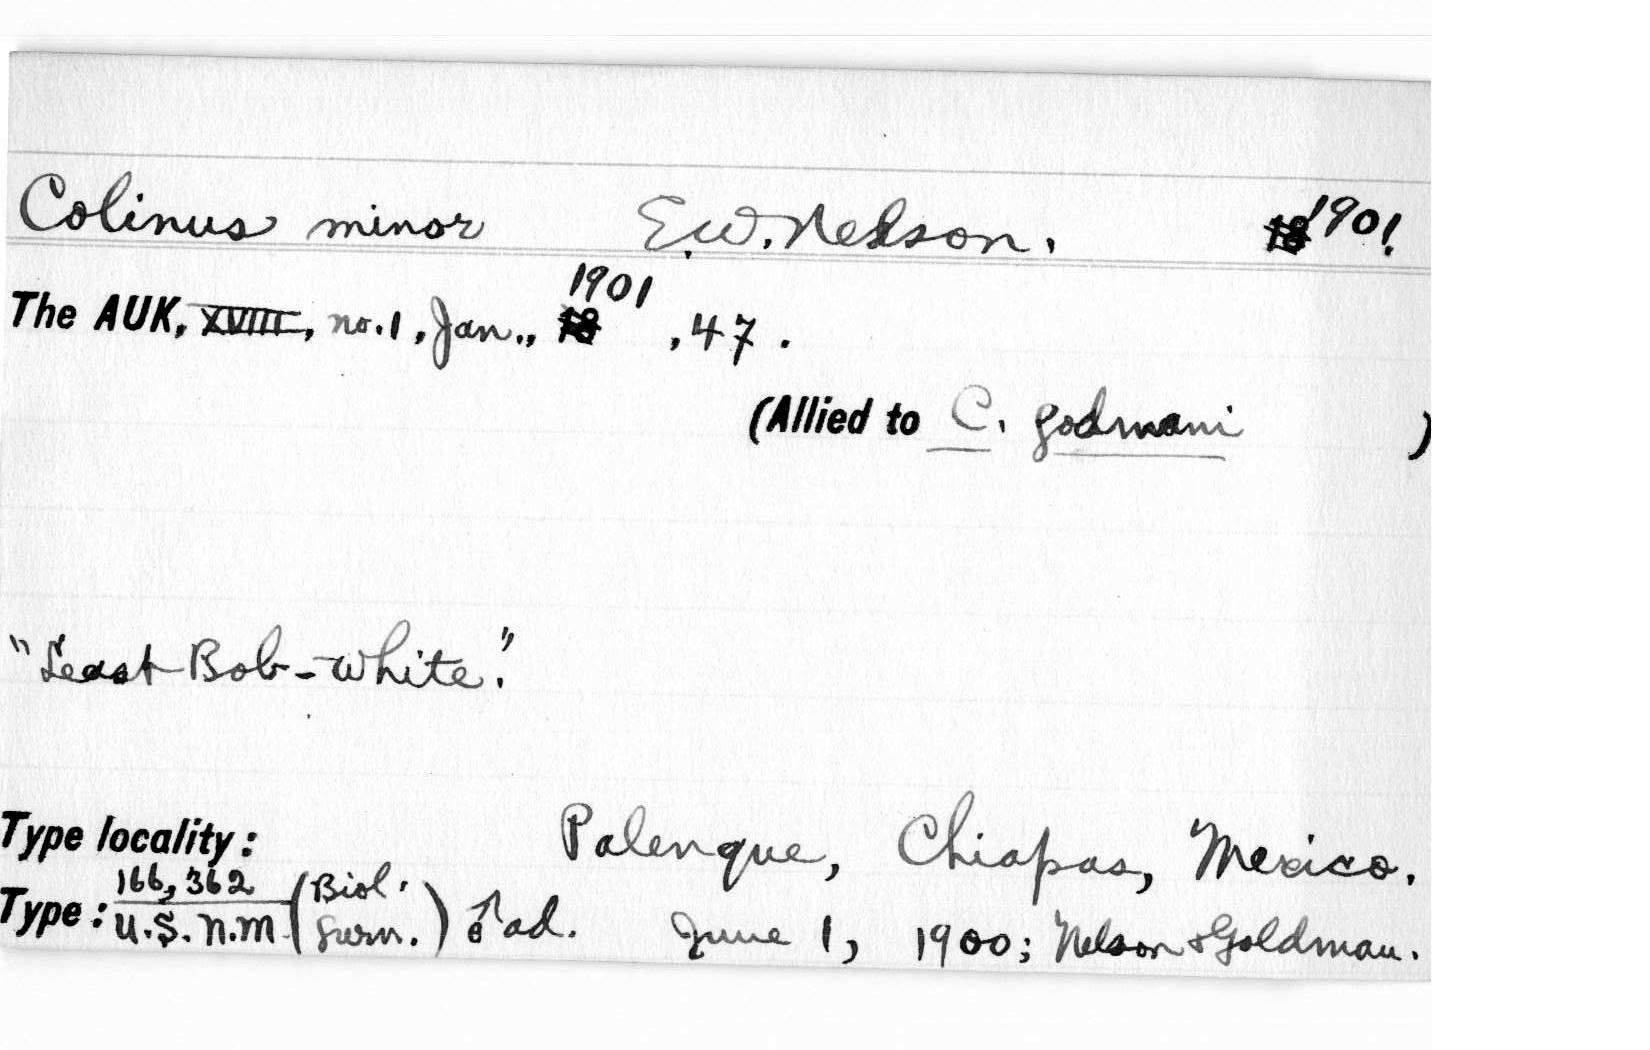 Colinus minor E.W. Nelson. 1901.
The AUK, XVIII, no. 1, Jan., 1901, 47.
(Allied to C. godmani)
"Least Bob-White."
Type locality: Palenque, Chiapas, Mexico.
Type: 166,362 U.S.N.M. (Biol. Surv.) ♂ ad. June 1, 1900; Nelson & Goldman.